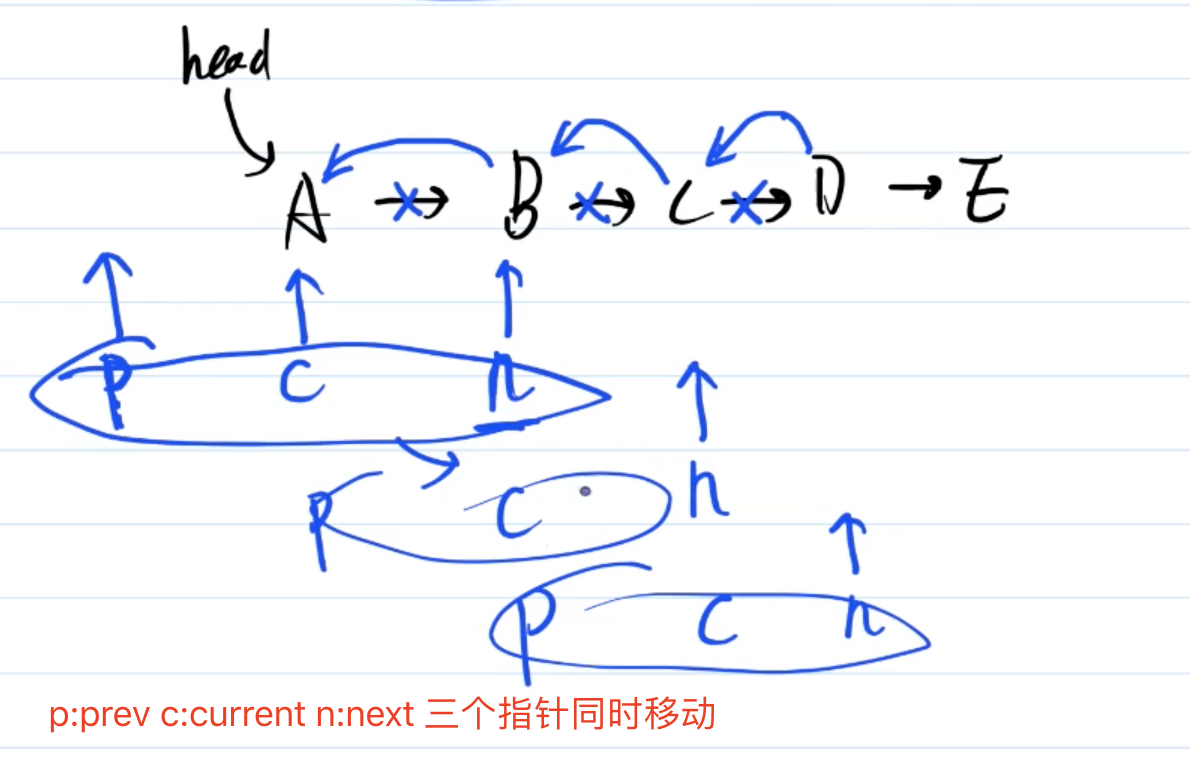 head
A → B → C → D → E
P C n
P C n
P C n
p:prev c:current n:next 三个指针同时移动